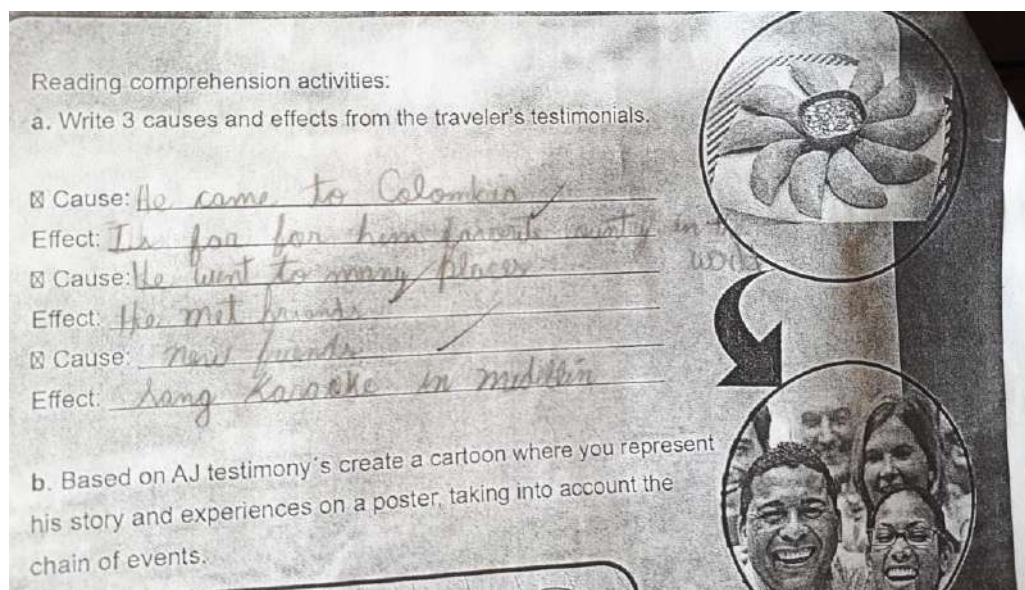 Reading comprehension activities:
a. Write 3 causes and effects from the traveler's testimonials.
☒ Cause: He came to Colombia
Effect: Is far for him favorite country in
world
☒ Cause: He went to many places
Effect: He met friends
☒ Cause: new friends
Effect: Sang Karaoke in medellin
b. Based on AJ testimony´s create a cartoon where you represent
his story and experiences on a poster, taking into account the
chain of events.